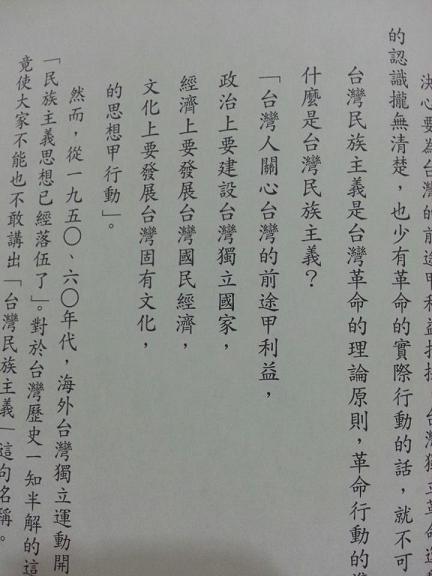 決心要為台灣的前途甲利益打拼，台灣獨立革命運動
的認識攏無清楚，也少有革命的實際行動的話，就不可
台灣民族主義是台灣革命的理論原則，革命行動的準
什麼是台灣民族主義？
「台灣人關心台灣的前途甲利益，
政治上要建設台灣獨立國家，
經濟上要發展台灣國民經濟，
文化上要發展台灣固有文化，
的思想甲行動」。
然而，從一九五〇、六〇年代，海外台灣獨立運動開
「民族主義思想已經落伍了」。對於台灣歷史一知半解的這
竟使大家不能也不敢講出「台灣民族主義」這句名稱。